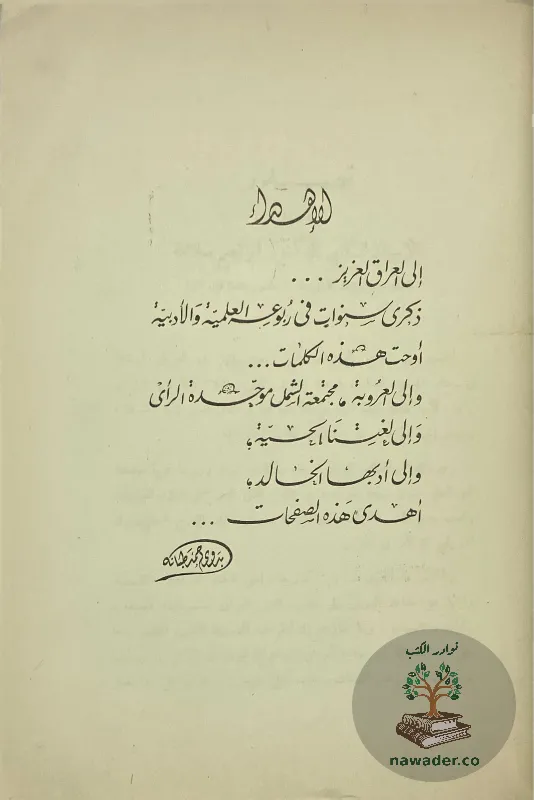 الإهداء
إلى العراق العزيز ...
ذكرى سنوات فى رُبوعه العلميّة وَالأدبيّة
أوحت هذه الكلمات ...
وإلى العرُوبة ، مجتمعة الشمل موحّدة الرأى
وَإلى لغتنَا الحيّة ،
وإلى أدبها الخالد ،
أهدى هَذه الصفحات ...
بدوى أحمد طبانه
نوادر الكتب
nawader.co